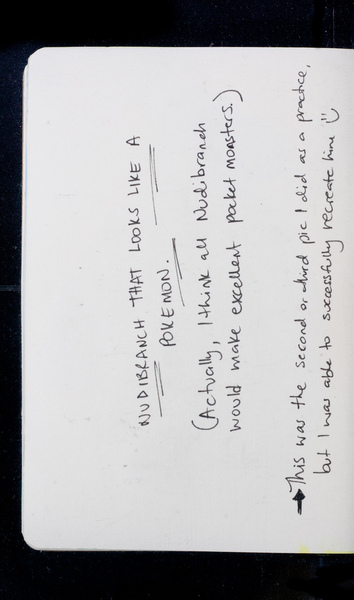 NUDIBRANCH THAT LOOKS LIKE A
POKEMON.
(Actually, I think all Nudibranch
would make excellent pocket monsters.)
→ This was the second or third pic I did as a practice,
but I was able to successfully recreate him Ü